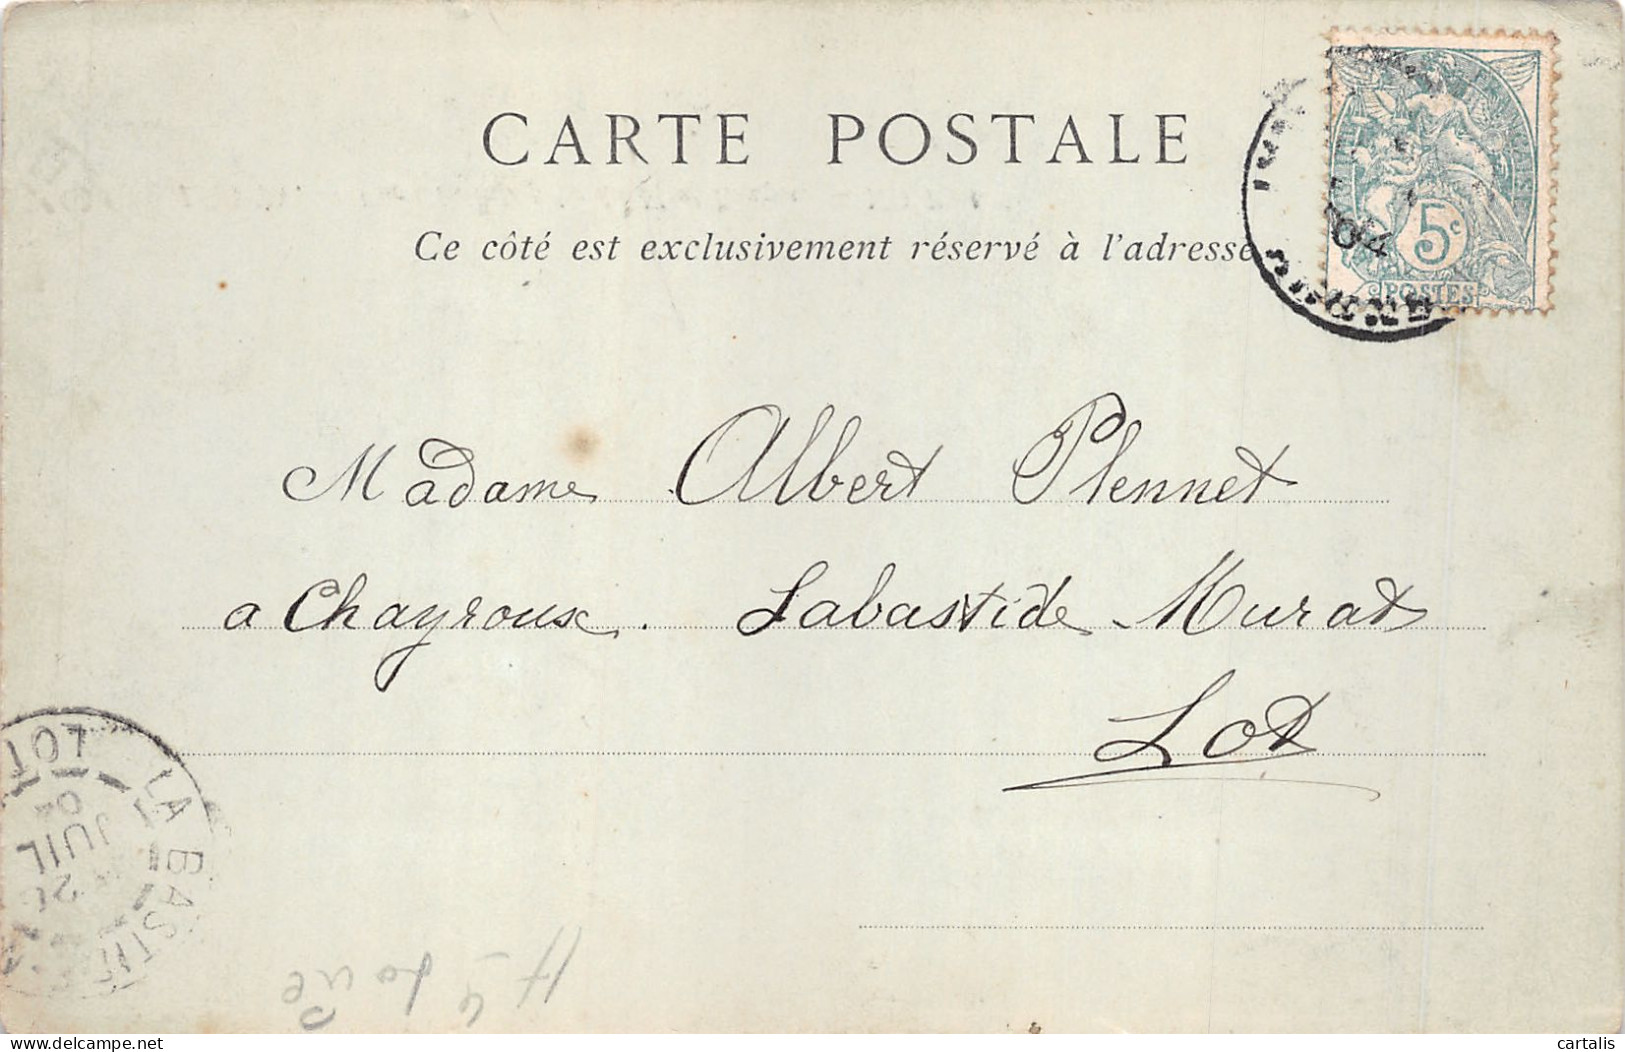 CARTE POSTALE
Ce côté est exclusivement réservé à l'adresse
04
5c
POSTES
Madame Albert Plennet
a Chayroux. Labastide Murat
Lot
LOT LA BASTID
04
JUIL
20
delcampe.net
cartalis